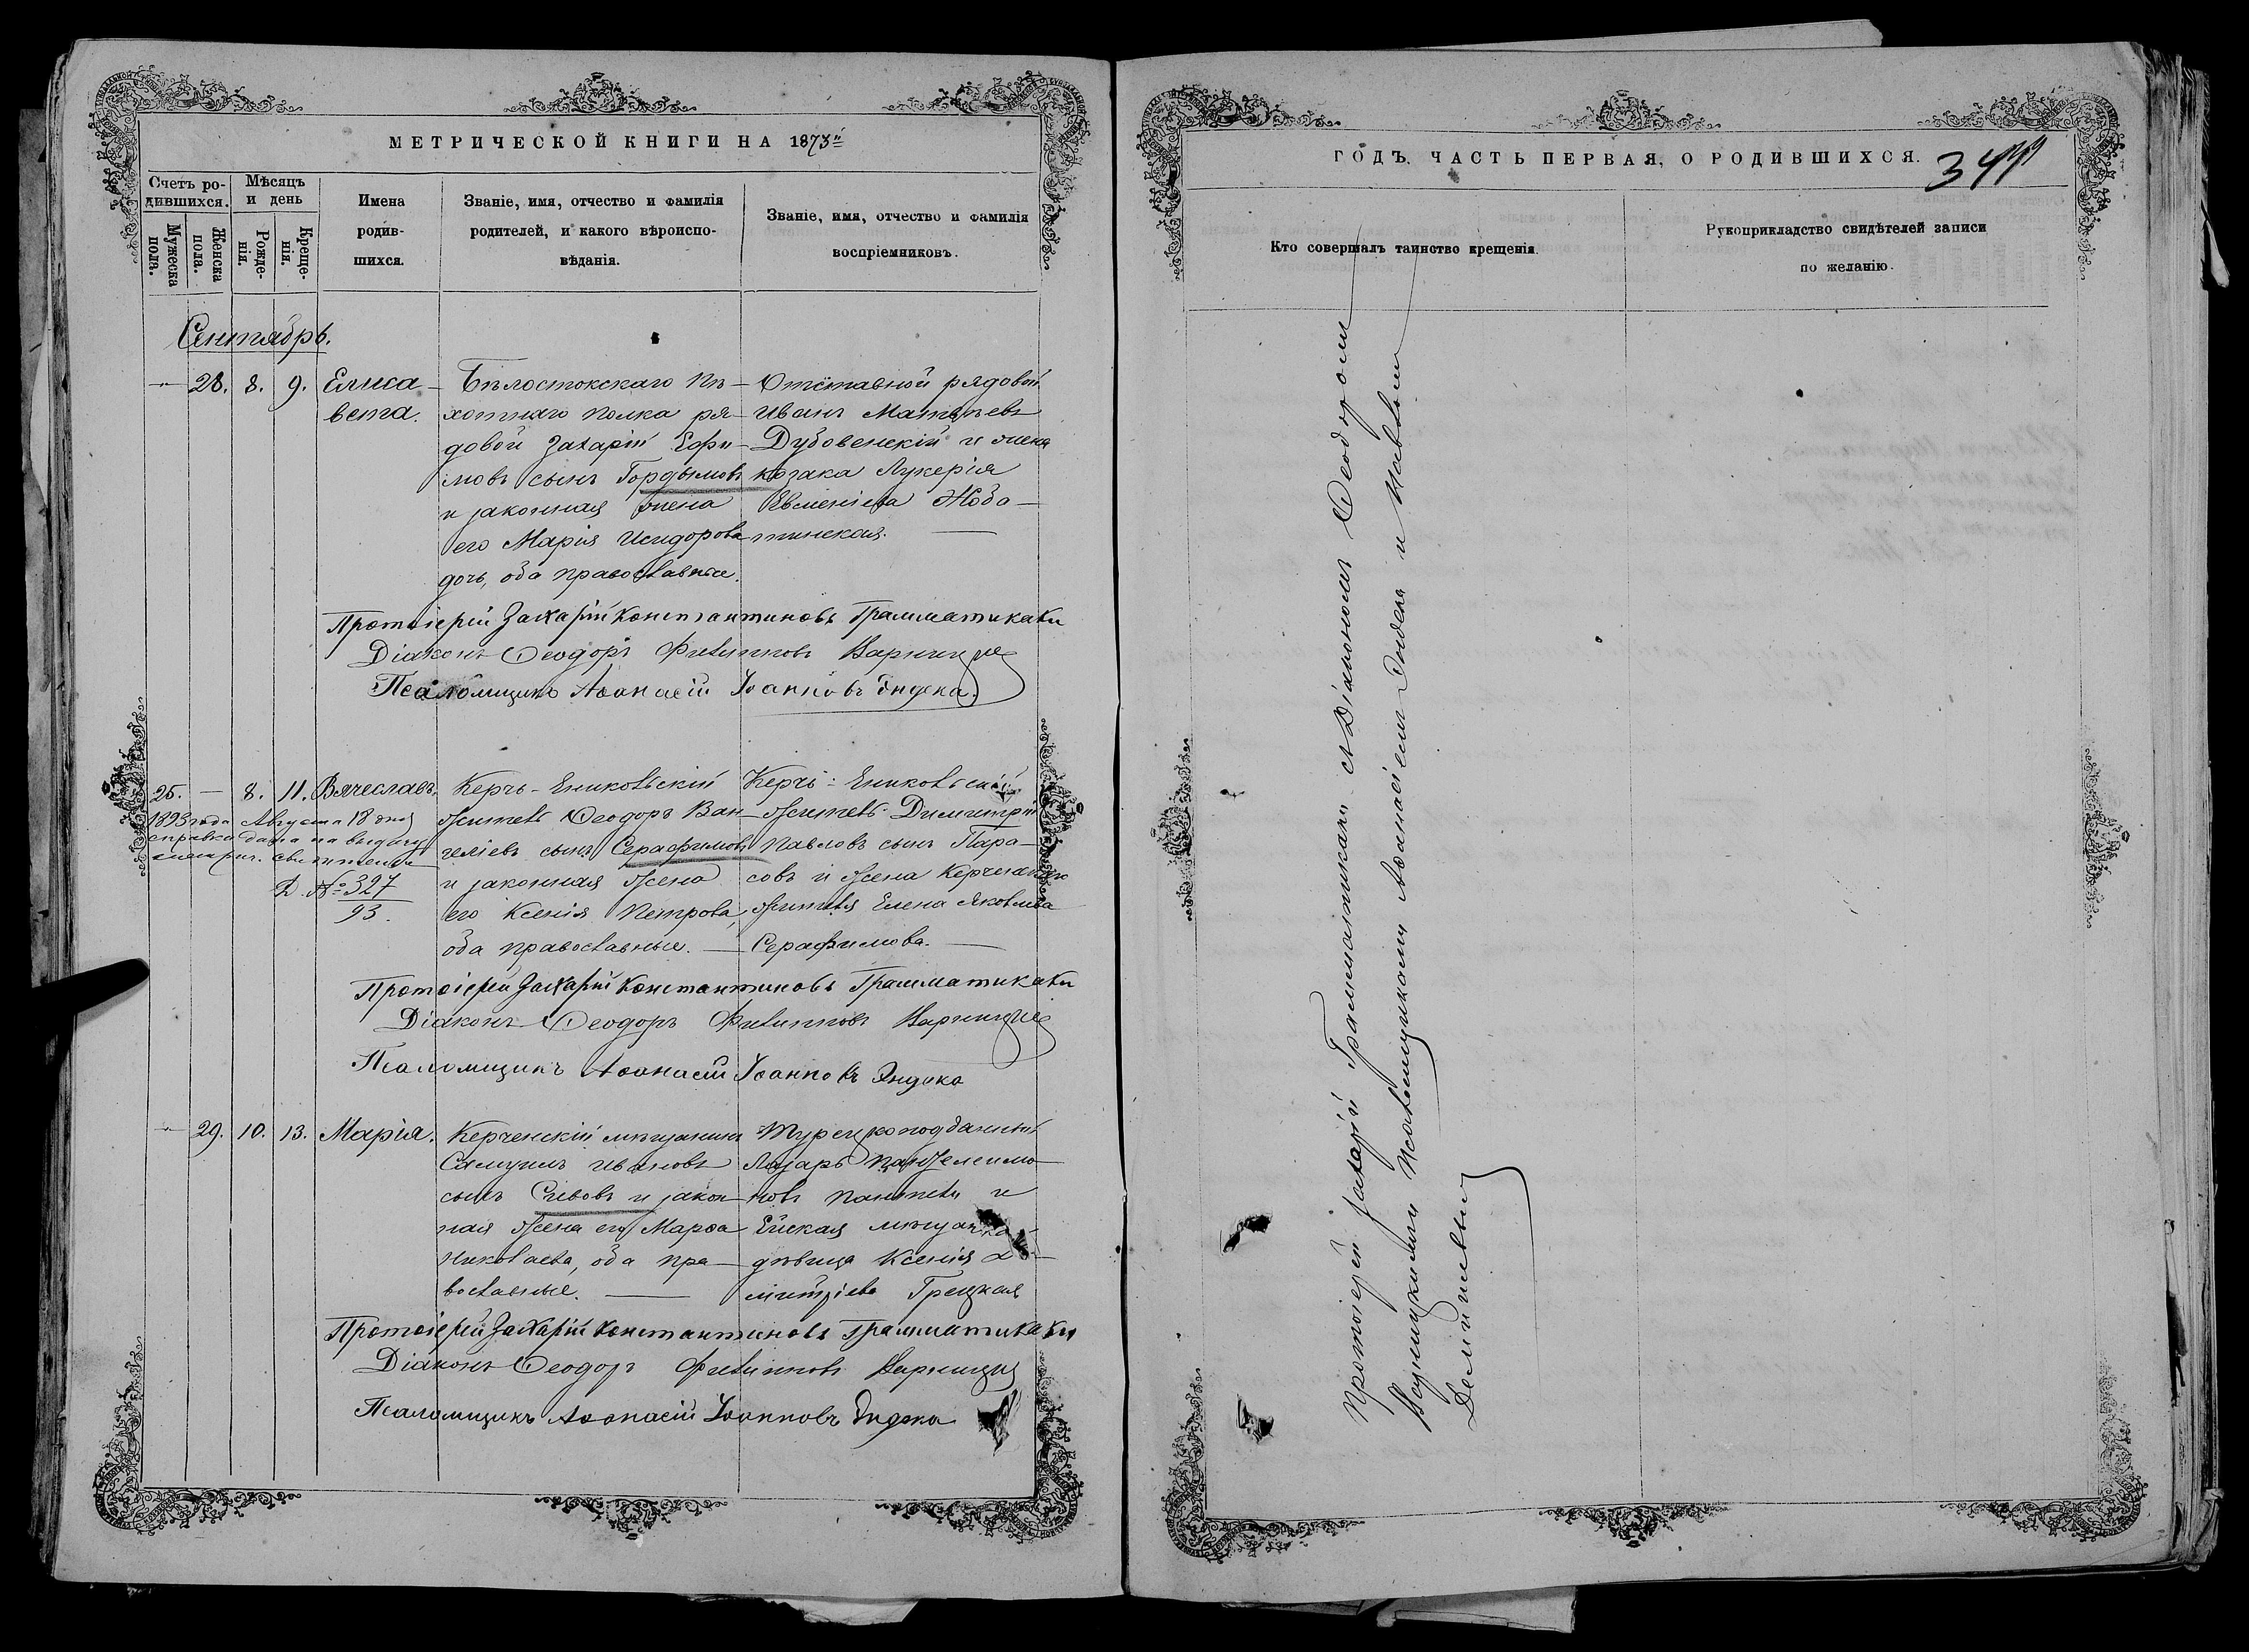 МЕТРИЧЕСКОЙ КНИГИ НА 1873й
Счетъ ро-
дившихся.
Мужеска
пола.
Женска
пола.
Мѣсяцъ
и день
Рожде-
нія.
Креще-
нія.
Имена
родив-
шихся.
Званіе, имя, отчество и фамилія
родителей, и какого вѣроиспо-
вѣданія.
Званіе, имя, отчество и фамилія
воспріемниковъ.
Сентябрь.
28. 8. 9. Елиса-
вета.
Бѣлостокскаго пѣ-
хотнаго полка ря-
довой Захарій Ефи-
мовъ сынъ Гордымовъ
и законная жена
его Марія Исидорова
дочь, оба православные.
Отставной рядовой
Иванъ Матвѣевъ
Дубовенскій и жена
козака Лукерія
Евменіева Жоба-
тинская.
Протоіерей Захарій Константиновъ Грамматикаки
Діаконъ Ѳеодоръ Филипповъ
Псаломщикъ Аѳанасій Іоанновъ Эндека.
25. — 8. 11. Вячеславъ.
1893 года Августа 18 дня
справка дана на выдачу
метрич. свидѣтель
Д. № 327
93.
Керчь-Ениковскій
житель Ѳеодоръ Ван-
геліевъ сынъ Серафимовъ
и законная жена
его Ксенія Петрова,
оба православные.
Керчь-Ениковскій
житель Димитрій
Павловъ сынъ Пара-
совъ и жена
жителя Елена Яковлева
Серафимова.
Протоіерей Захарій Константиновъ Грамматикаки
Діаконъ Ѳеодоръ Филипповъ
Псаломщикъ Аѳанасій Іоанновъ Эндека
29. 10. 13. Марія.
Керченскій мѣщанинъ
Самуилъ Ивановъ
сынъ Сивовъ и закон-
ная жена его Марѳа
Николаева, оба пра-
вославные.
Турецкоподданный
Лазарь Пантелеимо-
новъ и
Ейская мѣщанка
дѣвица Ксенія Ди-
митріева Грецкая
Протоіерей Захарій Константиновъ Грамматикаки
Діаконъ Ѳеодоръ Филипповъ
Псаломщикъ Аѳанасій Іоанновъ Эндека
ГОДЪ. ЧАСТЬ ПЕРВАЯ, О РОДИВШИХСЯ.
Кто совершалъ таинство крещенія.
Рукоприкладство свидѣтелей записи
по желанію.
Протоіерей Захарій Грамматикаки съ Діакономъ Ѳеодоромъ
и Псаломщиками Аѳанасіемъ Эндека и Павломъ